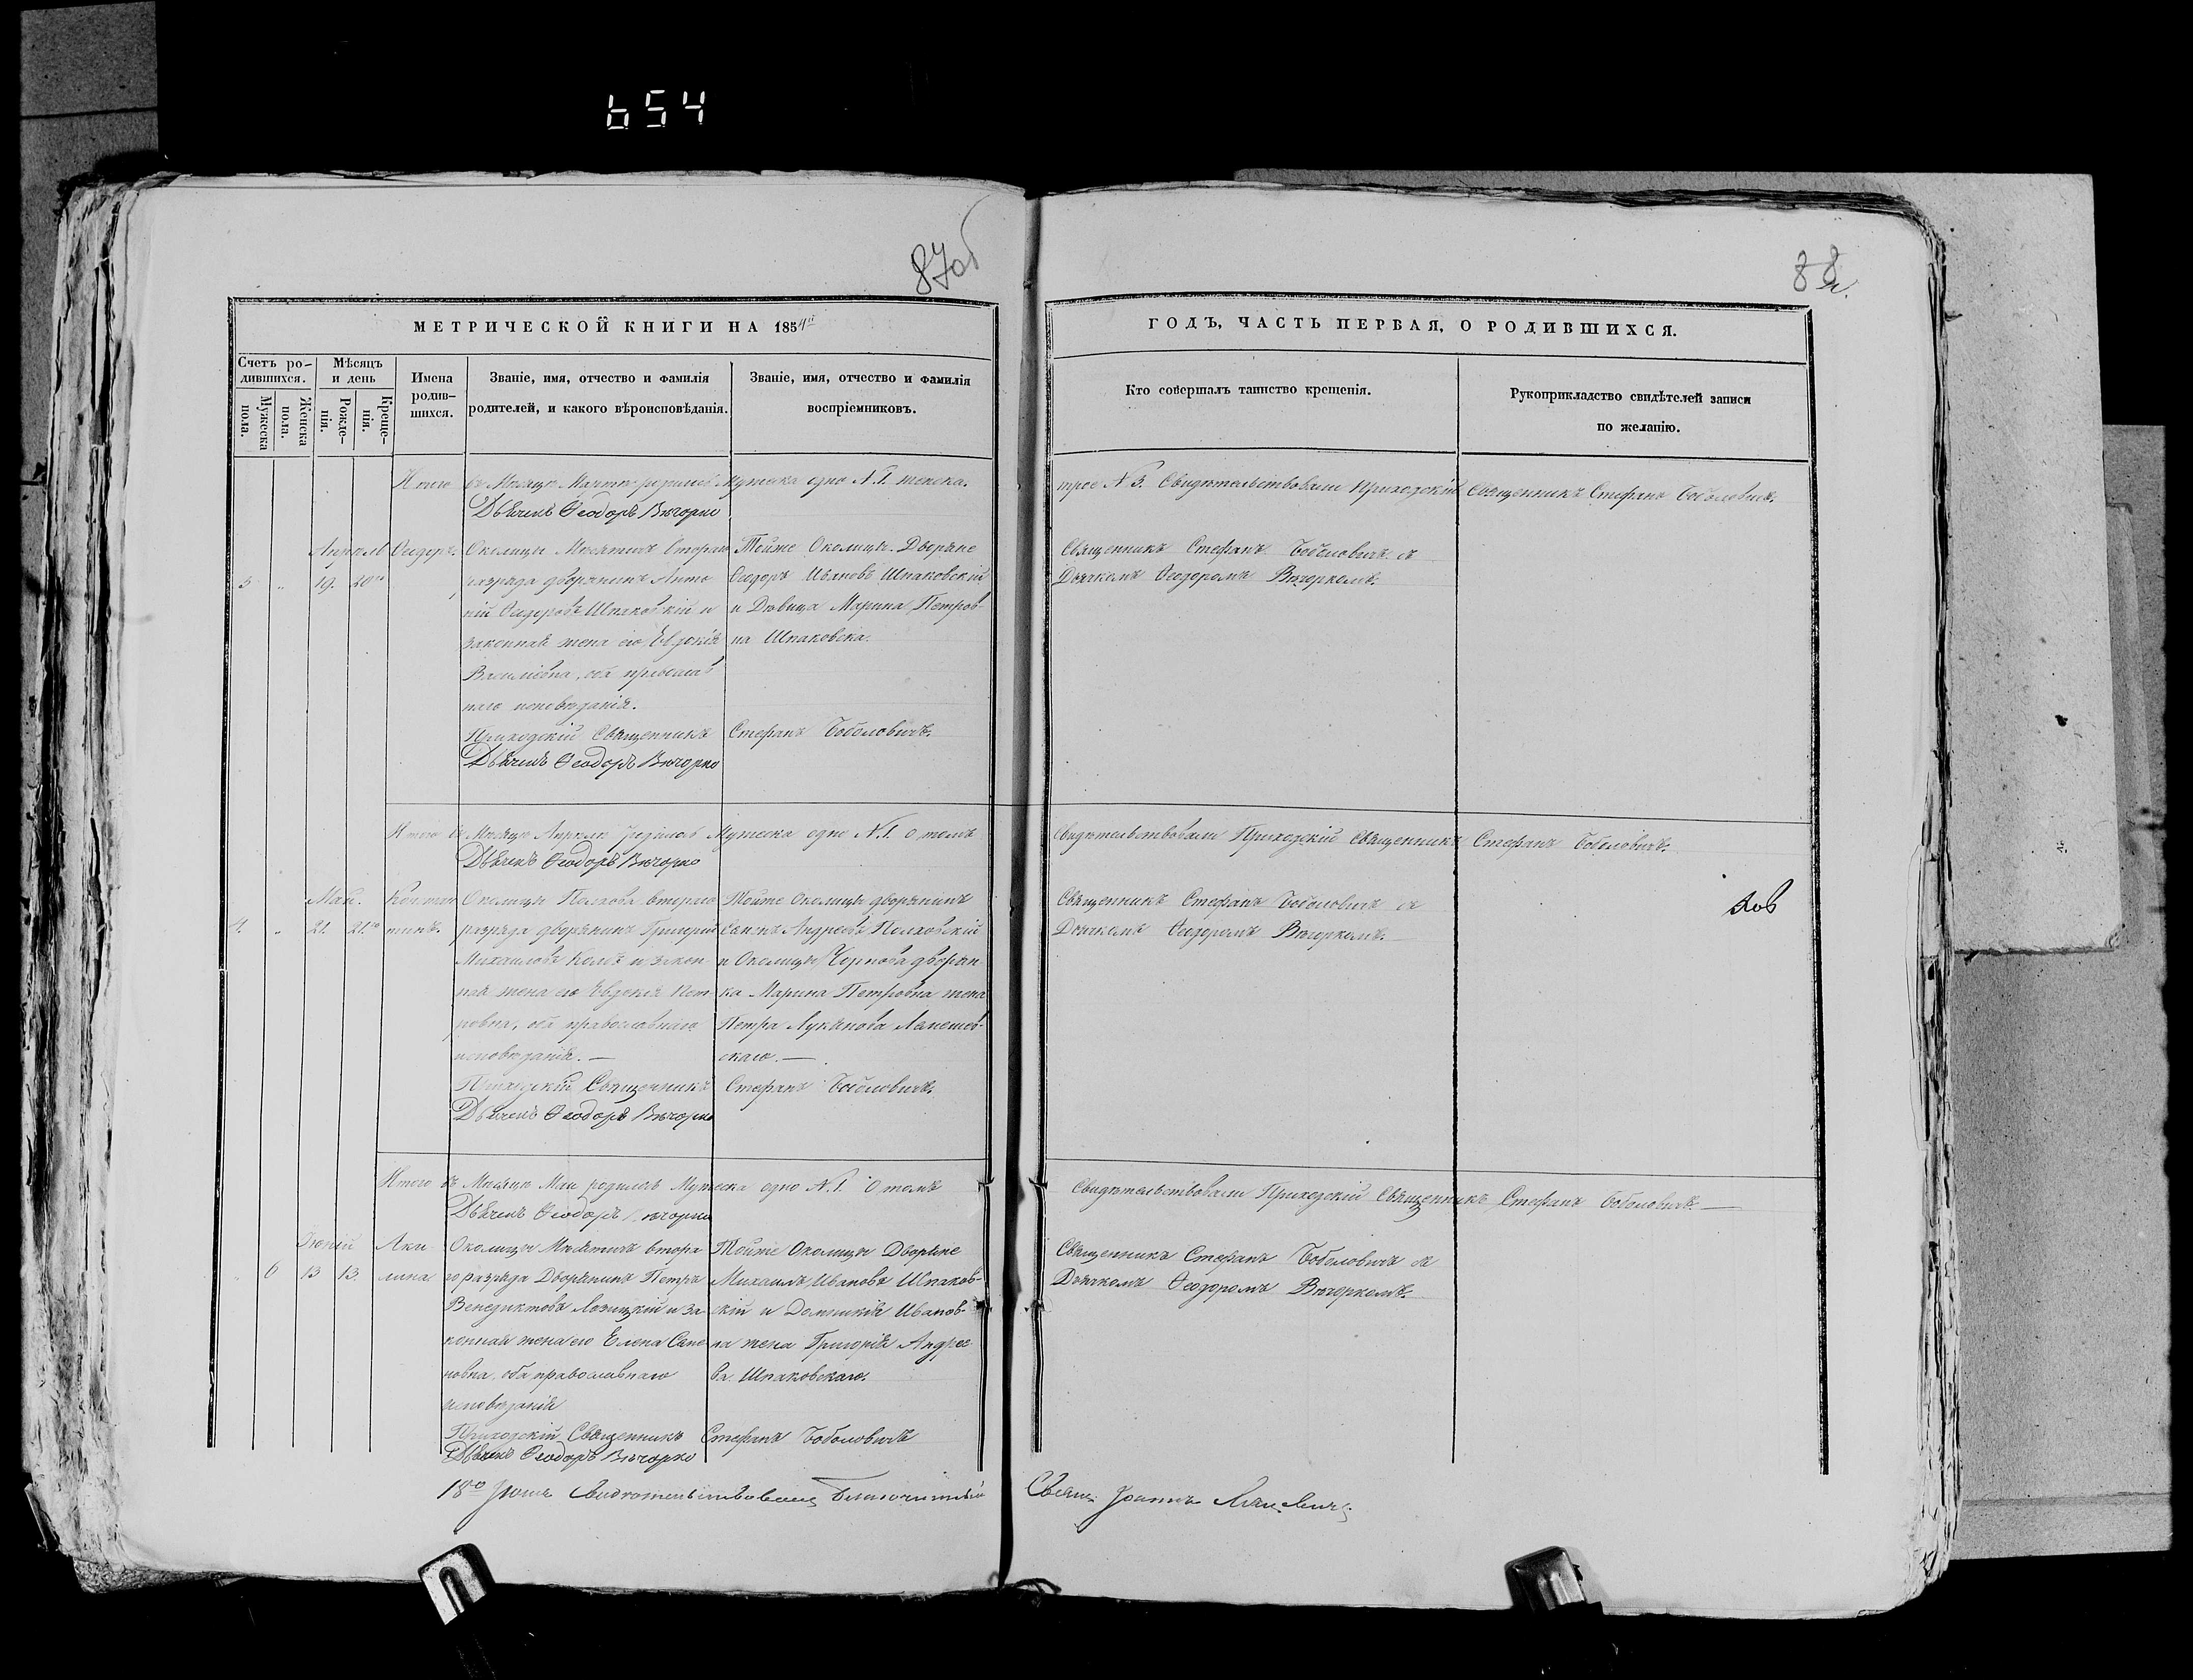 654
87об
88
МЕТРИЧЕСКОЙ КНИГИ НА 1854й
Счетъ ро-
дившихся.
Мужеска
пола.
Женска
пола.
Мѣсяцъ
и день
Рожде-
нія.
Креще-
нія.
Имена
родив-
шихся.
Званіе, имя, отчество и фамилія
родителей, и какого вѣроисповѣданія.
Званіе, имя, отчество и фамилія
воспріемниковъ.
Итого въ Мѣсяцѣ Мартѣ Мужеска одно N.1. женска.
Дьячекъ Ѳеодоръ Вѣчорко
Апрѣль
3 " 19. 20го
Околицы Мнѣтичъ втораго
разряда дворянинъ Анто
ній Шпаковскій и
законная жена его Евдокія
Василіева, оба православ
наго исповѣданія.
Тойже Околицы. Дворяне
Ѳедоръ Ивановъ Шпаковскій
и Дѣвица Марина Петров-
на Шпаковска.
Приходскій Священникъ Стефанъ Боболовичъ.
Дьячекъ Ѳеодоръ Вѣчорко
Итого въ Мѣсяцѣ Апрѣлѣ родилось Мужеска одно N.1. о томъ
Дьячекъ Ѳеодоръ Вѣчорко
Май.
4. " 21. 21.го
Констан
тинъ.
Околицы втораго
разряда дворянинъ Григорій
Михаиловъ и закон-
ная жена его Евдокія Пет-
ровна, оба православнаго
исповѣданія. —
Тойже Околицы дворянинъ
Андреевъ Полховскій
и Околицы Чернова дворян-
ка Марина Петровна жена
Петра Лукянова
скаго. —
Приходскій Священникъ Стефанъ Боболовичъ.
Дьячекъ Ѳеодоръ Вѣчорко
Итого въ Мѣсяцѣ Маи родилось Мужеска одно N.1. О томъ
Дьячекъ Ѳеодоръ Вѣчорко
Іюній
" 6 13 13.
Аки
лина
Околицы Мнѣтичъ втора
го разряда Дворянинъ Петръ
Венедиктовъ Лозицкій и за
конная жена его Елена Симе
новна, оба православнаго
исповѣданія
Тойже Околицы Дворяне
Михаилъ Ивановъ Шпаков-
скій и Домникія Иванов-
на жена Григорія Андрее
ва Шпаковскаго.
Приходскій Священникъ Стефанъ Боболовичъ
Дьячекъ Ѳеодоръ Вѣчорко
18го Іюня Свидѣтельствовалъ Благочинный
ГОДЪ, ЧАСТЬ ПЕРВАЯ, О РОДИВШИХСЯ.
Кто совершалъ таинство крещенія.
Рукоприкладство свидѣтелей записи
по желанію.
трое N 3. Свидѣтельствовали Приходскій Священникъ Стефанъ Боболовичъ.
Священникъ Стефанъ Боболовичъ съ
Дьячкомъ Ѳеодоромъ Вѣчоркомъ.
Свидѣтельствовали Приходскій Священникъ Стефанъ Боболовичъ.
Священникъ Стефанъ Боболовичъ съ
Дьячкомъ Ѳеодоромъ Вѣчоркомъ.
Свидѣтельствовали Приходскій Священникъ Стефанъ Боболовичъ. —
Священникъ Стефанъ Боболовичъ съ
Дьячкомъ Ѳеодоромъ Вѣчоркомъ.
Свящ. Іоаннъ